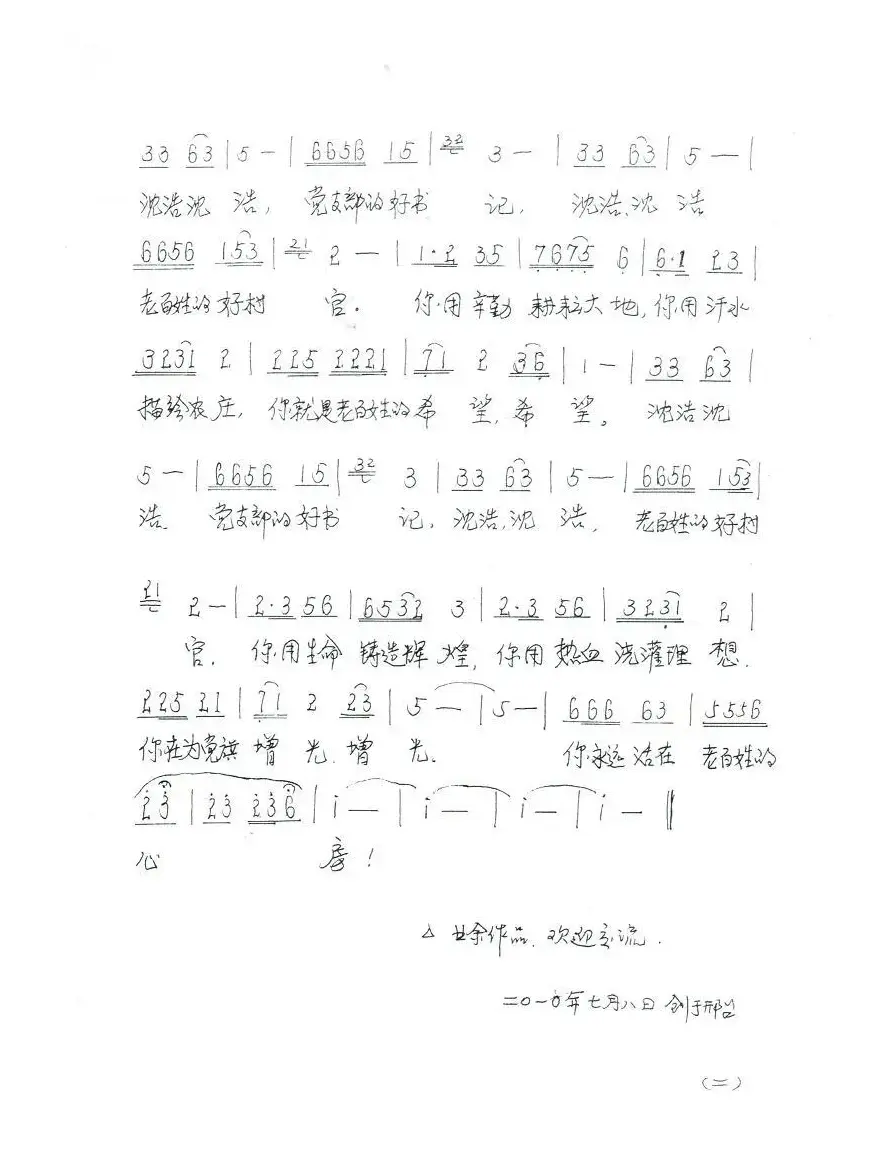 33 63 | 5 — | 6656 15 | 32 3 — | 33 63 | 5 — |
沈浩沈 浩, 党支部的好书 记, 沈浩、沈 浩
6656 153 | 21 2 — | 1·2 35 | 7675 6 | 6·1 23 |
老百姓的好村 官. 你用辛勤 耕耘大地, 你用汗水
3231 2 | 225 2221 | 71 2 36 | 1 — | 33 63 |
描绘农庄, 你就是老百姓的希 望, 希 望。 沈浩沈
5 — | 6656 15 | 32 3 | 33 63 | 5 — | 6656 153 |
浩. 党支部的好书 记, 沈浩,沈 浩, 老百姓的好村
21 2 — | 2·3 56 | 6532 3 | 2·3 56 | 3231 2 |
官. 你用生命 铸造辉 煌, 你用 热血 浇灌理 想.
225 21 | 71 2 23 | 5 — | 5 — | 666 63 | 5556
你在为党旗 增 光. 增 光. 你永远活在 老百姓的
23 | 23 236 | i — | i — | i — | i — ‖
心 房!
△ 业余作品. 欢迎交流.
二〇一〇年七月八日 创于邢台
(二)